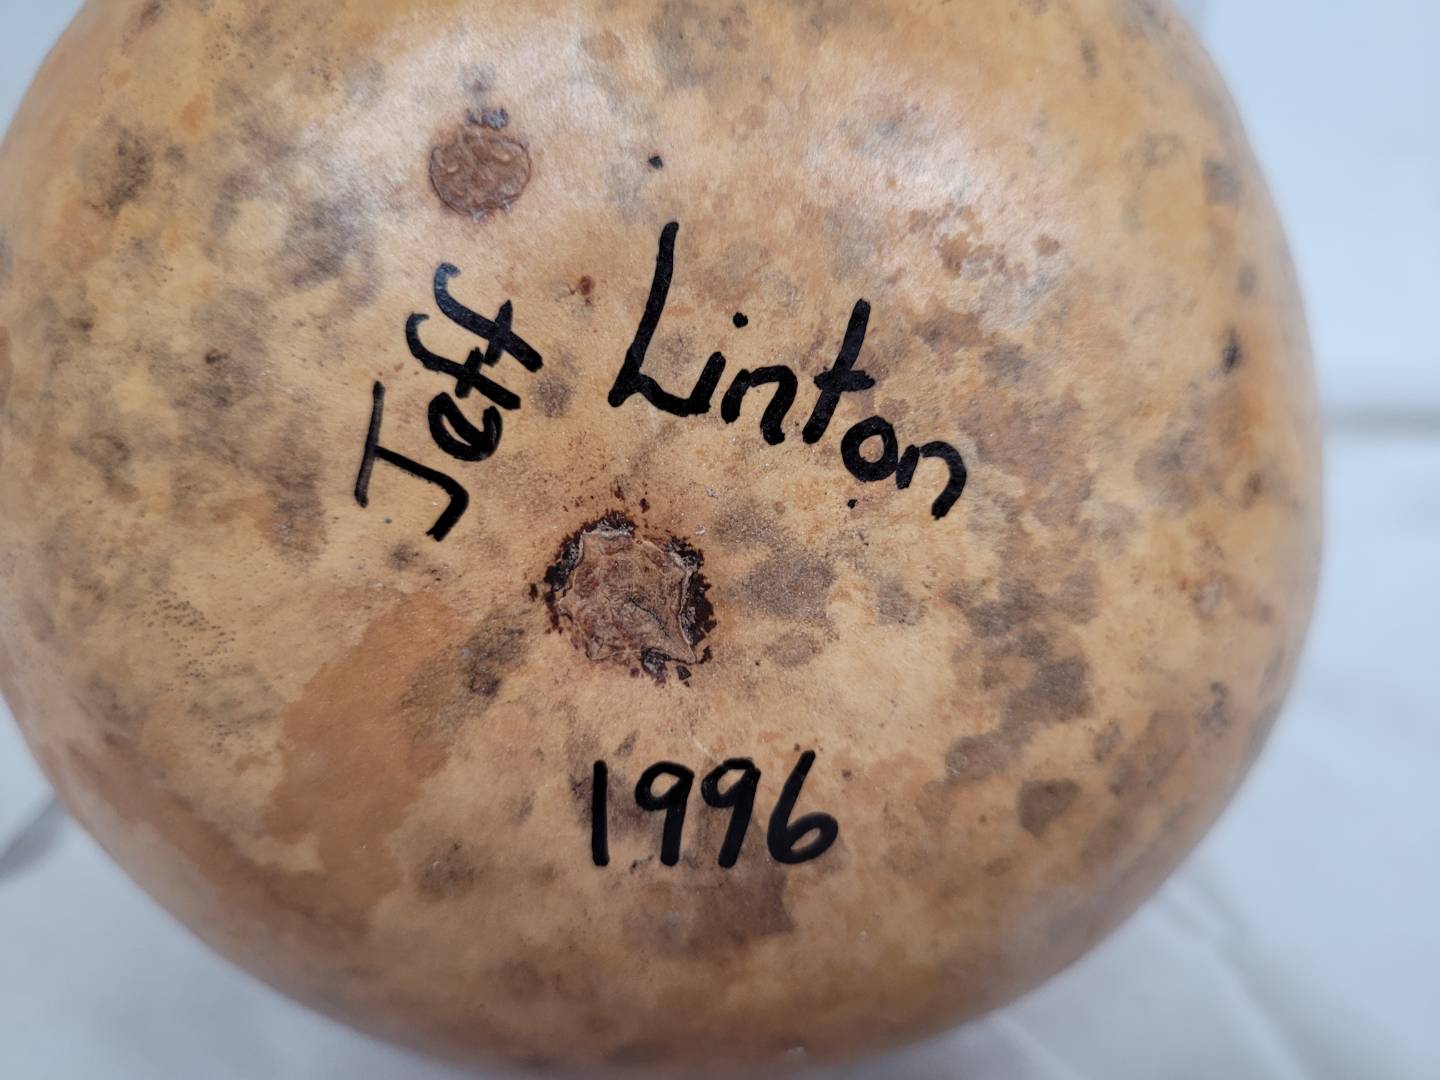 Jeff Linton
1996